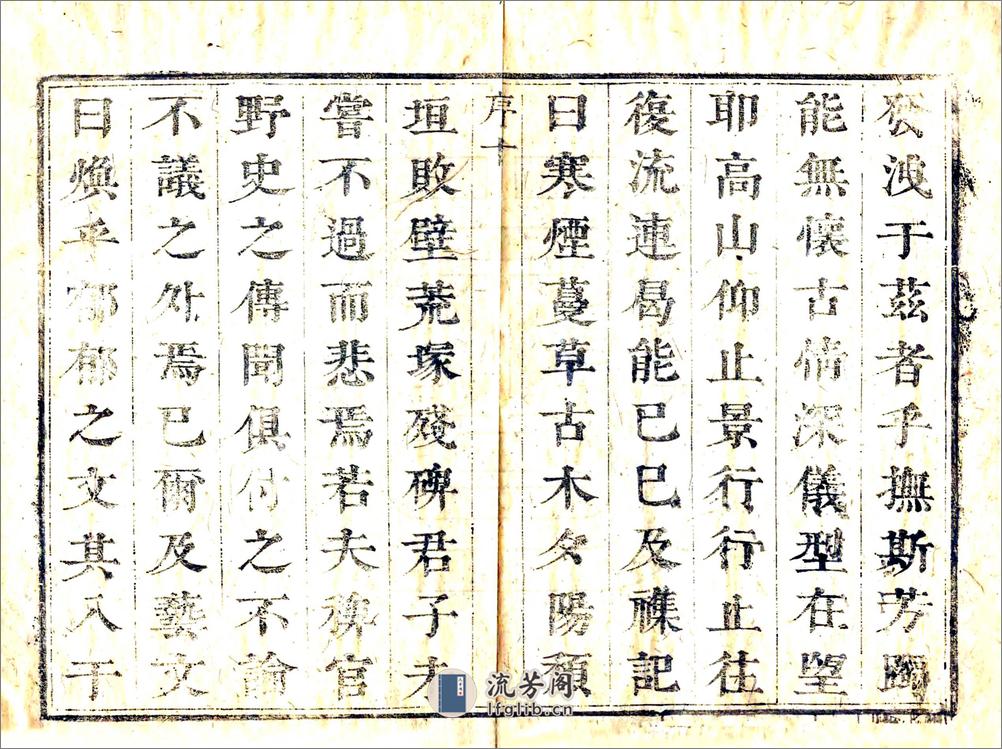 洩于茲者乎撫斯芳躅
能無懷古情深儀型在望
耶高山仰止景行行止往
復流連曷能已已及襍記
曰寒煙蔓草古木夕陽頹
序十
垣敗壁荒塚殘碑君子未
嘗不過而悲焉若夫稗官
野史之傳聞俱付之不論
不議之外焉已爾及藝文
曰煥乎郁郁之文其入于
流芳阁
lfglib.cn